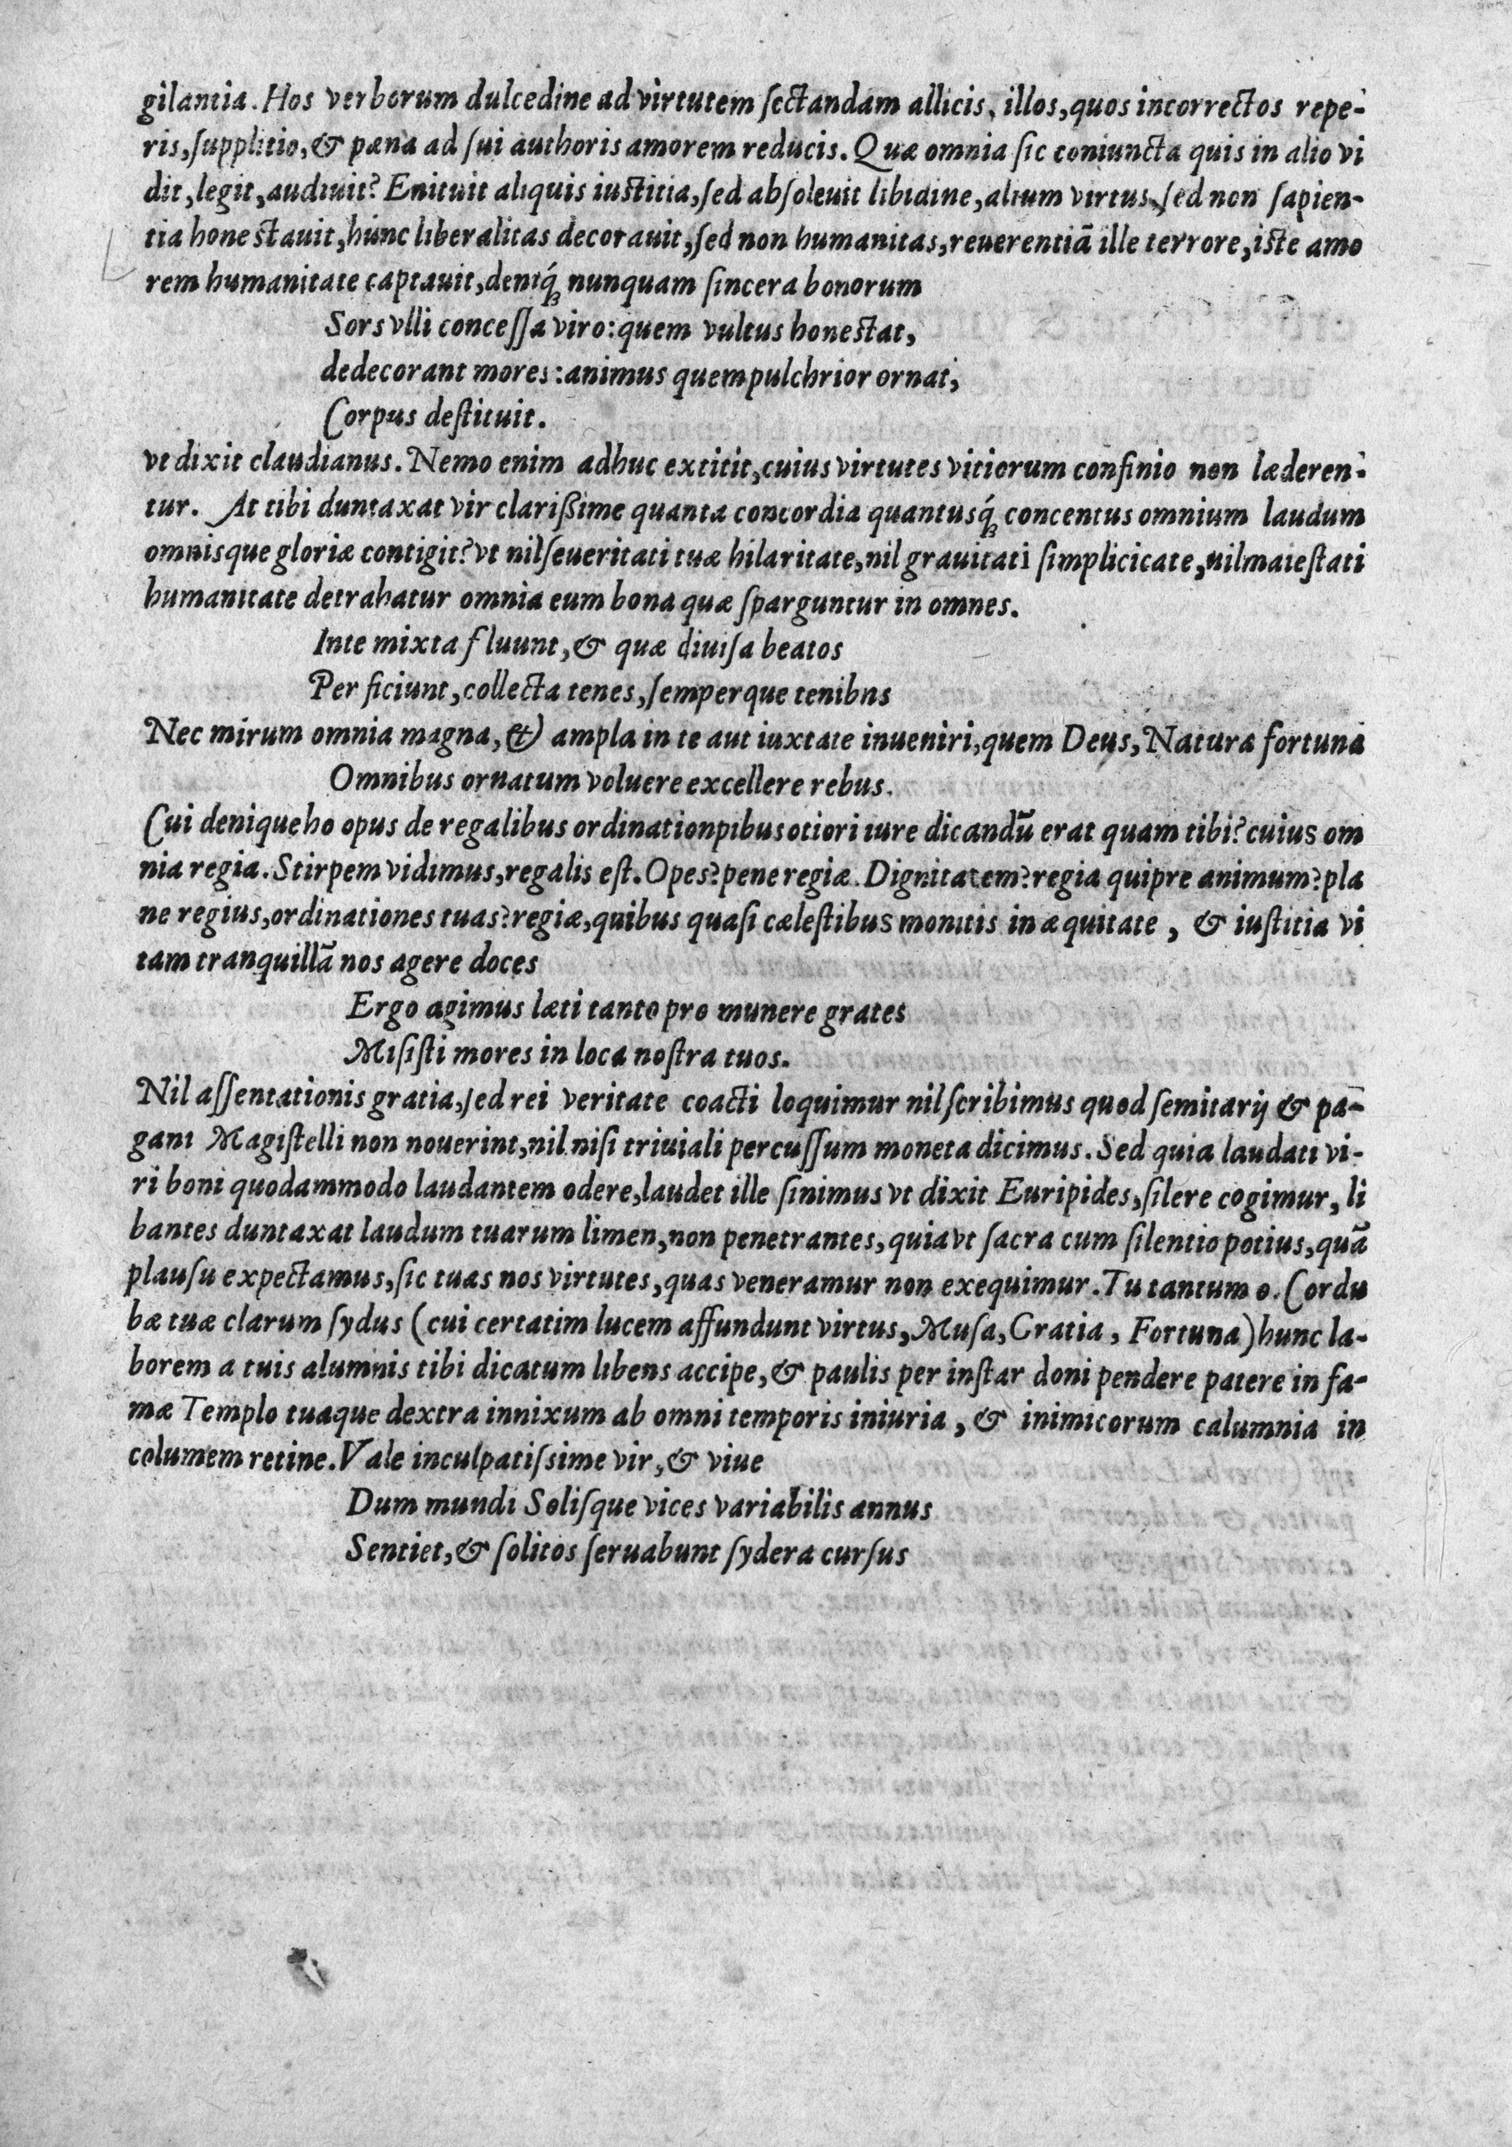 gilantia. Hos verborum dulcedine ad virtutem ſectandam allicis, illos, quos incorrectos repe-
ris, ſupplitio, & pæna ad ſui authoris amorem reducis. Quæ omnia ſic coniuncta quis in alio vi
dit, legit, audiuit? Enituit aliquis iuſtitia, ſed abſoleuit libidine, alium virtus, ſed non ſapien-
tia honeſtauit, hunc liberalitas decorauit, ſed non humanitas, reuerentiã ille terrore, iſte amo
rem humanitate captauit, deniq́ꝫ nunquam ſincera bonorum
Sors vlli conceſſa viro: quem vultus honeſtat,
dedecorant mores: animus quem pulchrior ornat,
Corpus deſtituit.
vt dixit claudianus. Nemo enim adhuc extitit, cuius virtutes vitiorum confinio non læderen-
tur. At tibi duntaxat vir clarißime quanta concordia quantusq́ꝫ concentus omnium laudum
omnisque gloriæ contigit? vt nil ſeueritati tuæ hilaritate, nil grauitati ſimplicicate, nil maieſtati
humanitate detrahatur omnia eum bona quæ ſparguntur in omnes.
Inte mixta fluunt, & quæ diuiſa beatos
Per ficiunt, collecta tenes, ſemperque tenibns
Nec mirum omnia magna, & ampla in te aut iuxtate inueniri, quem Deus, Natura fortuna
Omnibus ornatum voluere excellere rebus.
Cui denique ho opus de regalibus ordinationpibus otiori iure dicandũ erat quam tibi? cuius om
nia regia. Stirpem vidimus, regalis eſt. Opes? pene regiæ. Dignitatem? regia quipre animum? pla
ne regius, ordinationes tuas? regiæ, quibus quaſi cæleſtibus monitis in æquitate, & iuſtitia vi
tam tranquillã nos agere doces
Ergo agimus læti tanto pro munere grates
Miſiſti mores in loca noſtra tuos.
Nil aſſentationis gratia, ſed rei veritate coacti loquimur nil ſcribimus quod ſemitarij & pa-
gani Magiſtelli non nouerint, nil niſi triuiali percuſſum moneta dicimus. Sed quia laudati vi-
ri boni quodammodo laudantem odere, laudet ille ſinimus vt dixit Euripides, ſilere cogimur, li
bantes duntaxat laudum tuarum limen, non penetrantes, quia vt ſacra cum ſilentio potius, quã
plauſu expectamus, ſic tuas nos virtutes, quas veneramur non exequimur. Tu tantum o. Cordu
bæ tuæ clarum ſydus (cui certatim lucem affundunt virtus, Muſa, Gratia, Fortuna) hunc la-
borem a tuis alumnis tibi dicatum libens accipe, & paulis per inſtar doni pendere patere in fa-
mæ Templo tuaque dextra innixum ab omni temporis iniuria, & inimicorum calumnia in
columem retine. Vale inculpatiſsime vir, & viue
Dum mundi Soliſque vices variabilis annus
Sentiet, & ſolitos ſeruabunt ſydera curſus